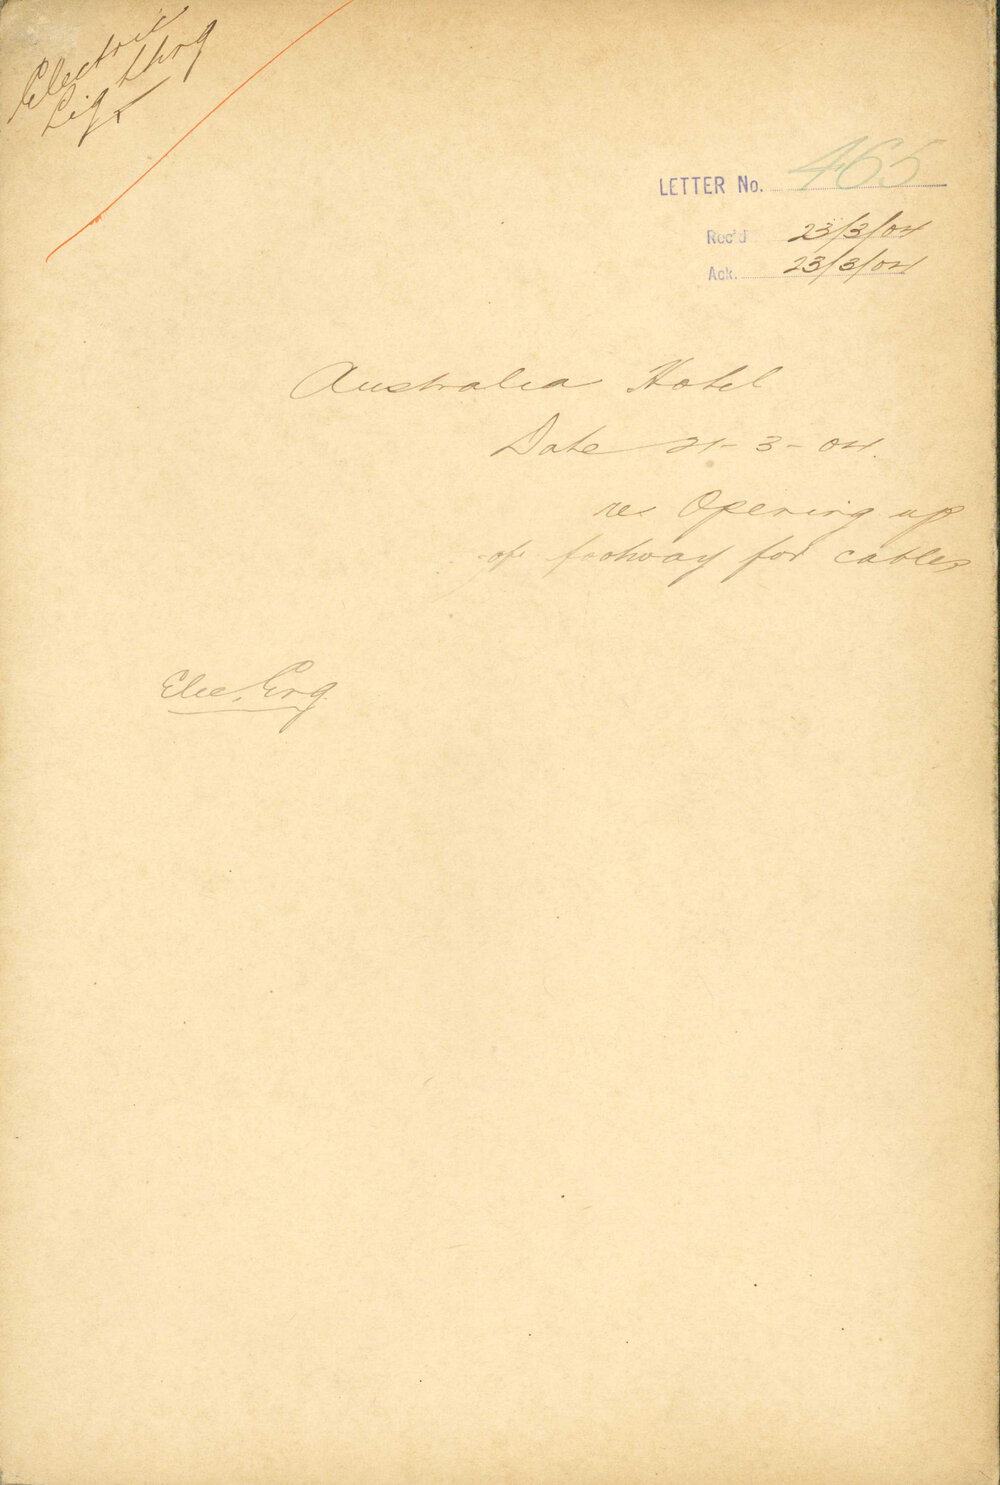 Electric
Lighting
LETTER No. 465
Rec'd 23/3/04
Ack. 23/3/04
Australia Hotel
Date 21-3-04.
re Opening up
of footway for cables
Elec. Eng.